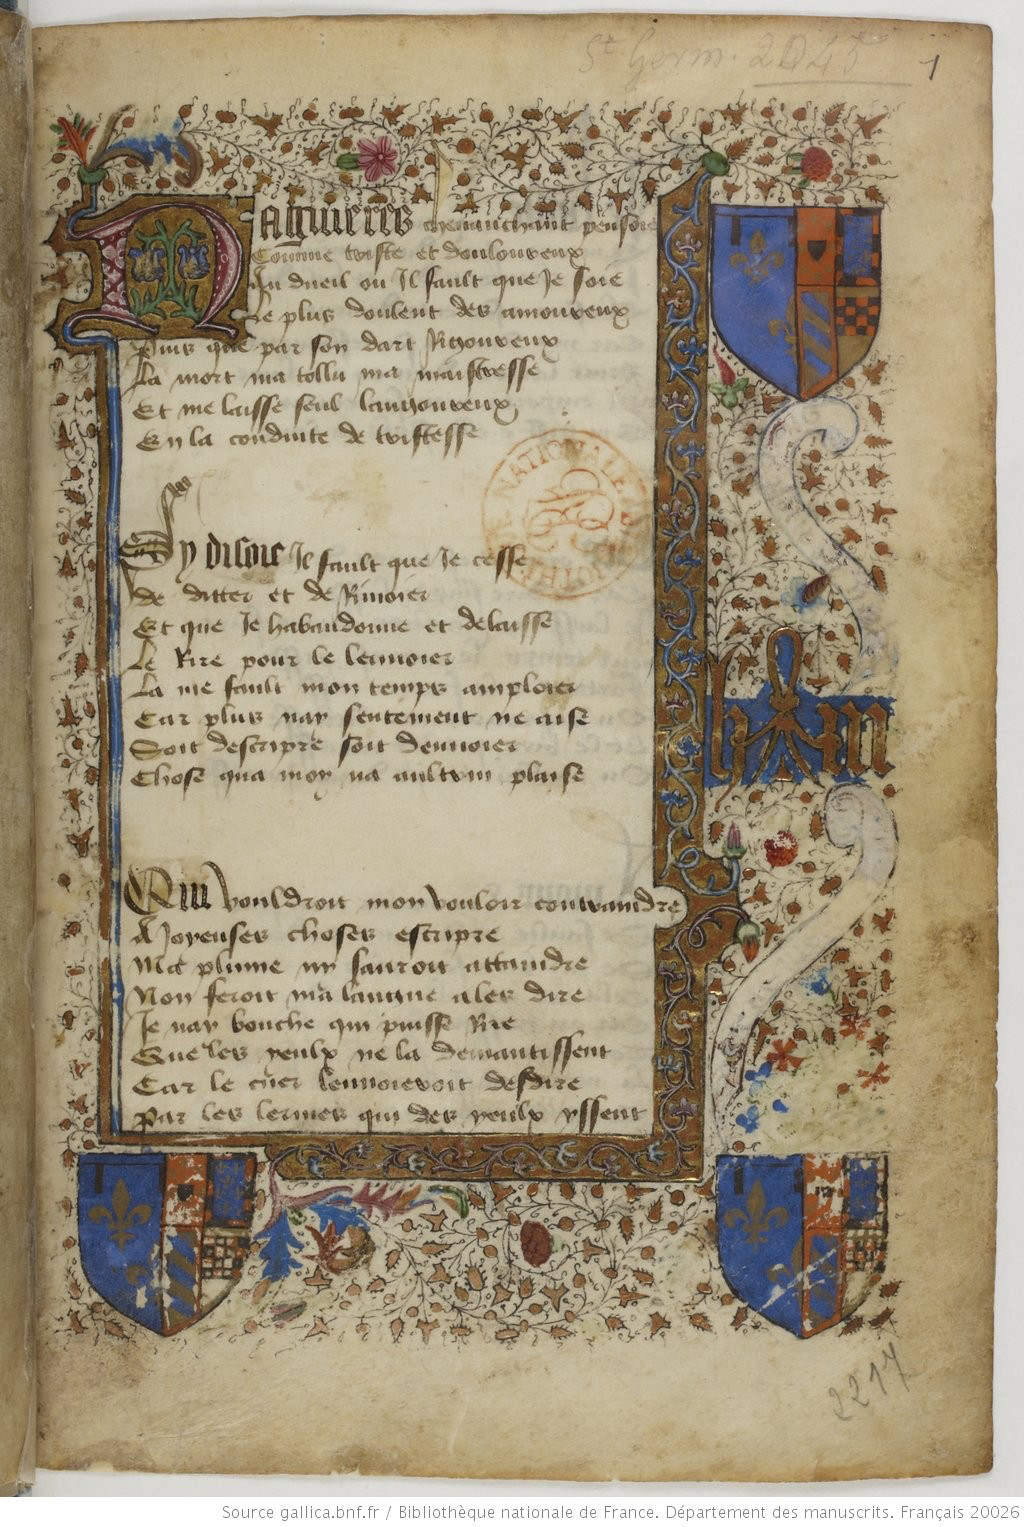 St Germ. 2045
1
Naguieres chevauchant pensoie
Comme triste et douloureux
Au dueil ou Il fault que Je soie
Le plus doulent des amoureux
Puis que par son dart Rigoureux
La mort ma tollu ma maistresse
Et me laisse seul langoureux
En la conduite de tristesse
Sy disoie Il fault que Je cesse
de ditter et de Rimoier
Et que Je habandonne et delaisse
Le Rire pour le lermoier
La me fault mon temps amploier
Car plus nay sentement ne aise
Soit descripre soit denvoier
Chose qua moy na aultruy plaise
Qui vouldroit mon vouloir contraindre
A Joyeuses choses escripre
Ma plume ny sauroit attaindre
Non feroit ma langue a les dire
Je nay bouche qui puisse Rire
Que les yeulx ne la demantissent
Car le cuer lenvoieroit desdire
Par les lermes qui des yeulx yssent
h m
BIBLIOTHEQUE NATIONALE
2217
Source gallica.bnf.fr / Bibliothèque nationale de France. Département des manuscrits. Français 20026